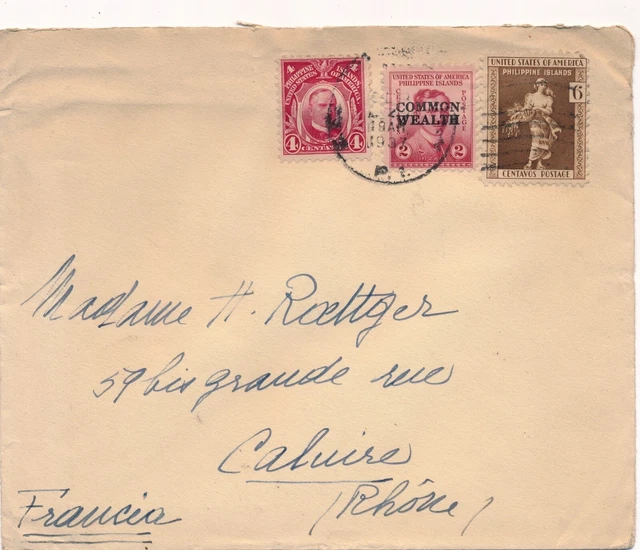 PHILIPPINE ISLANDS
UNITED STATES OF AMERICA
4 4
4 CENTAVOS 4
UNITED STATES OF AMERICA
PHILIPPINE ISLANDS
POSTAGE
COMMON-
WEALTH
2 2
UNITED STATES OF AMERICA
PHILIPPINE ISLANDS
6
CENTAVOS POSTAGE
P. I.
Madame H. Rœttger
59 bis grande rue
Caluire
(Rhône)
Francia